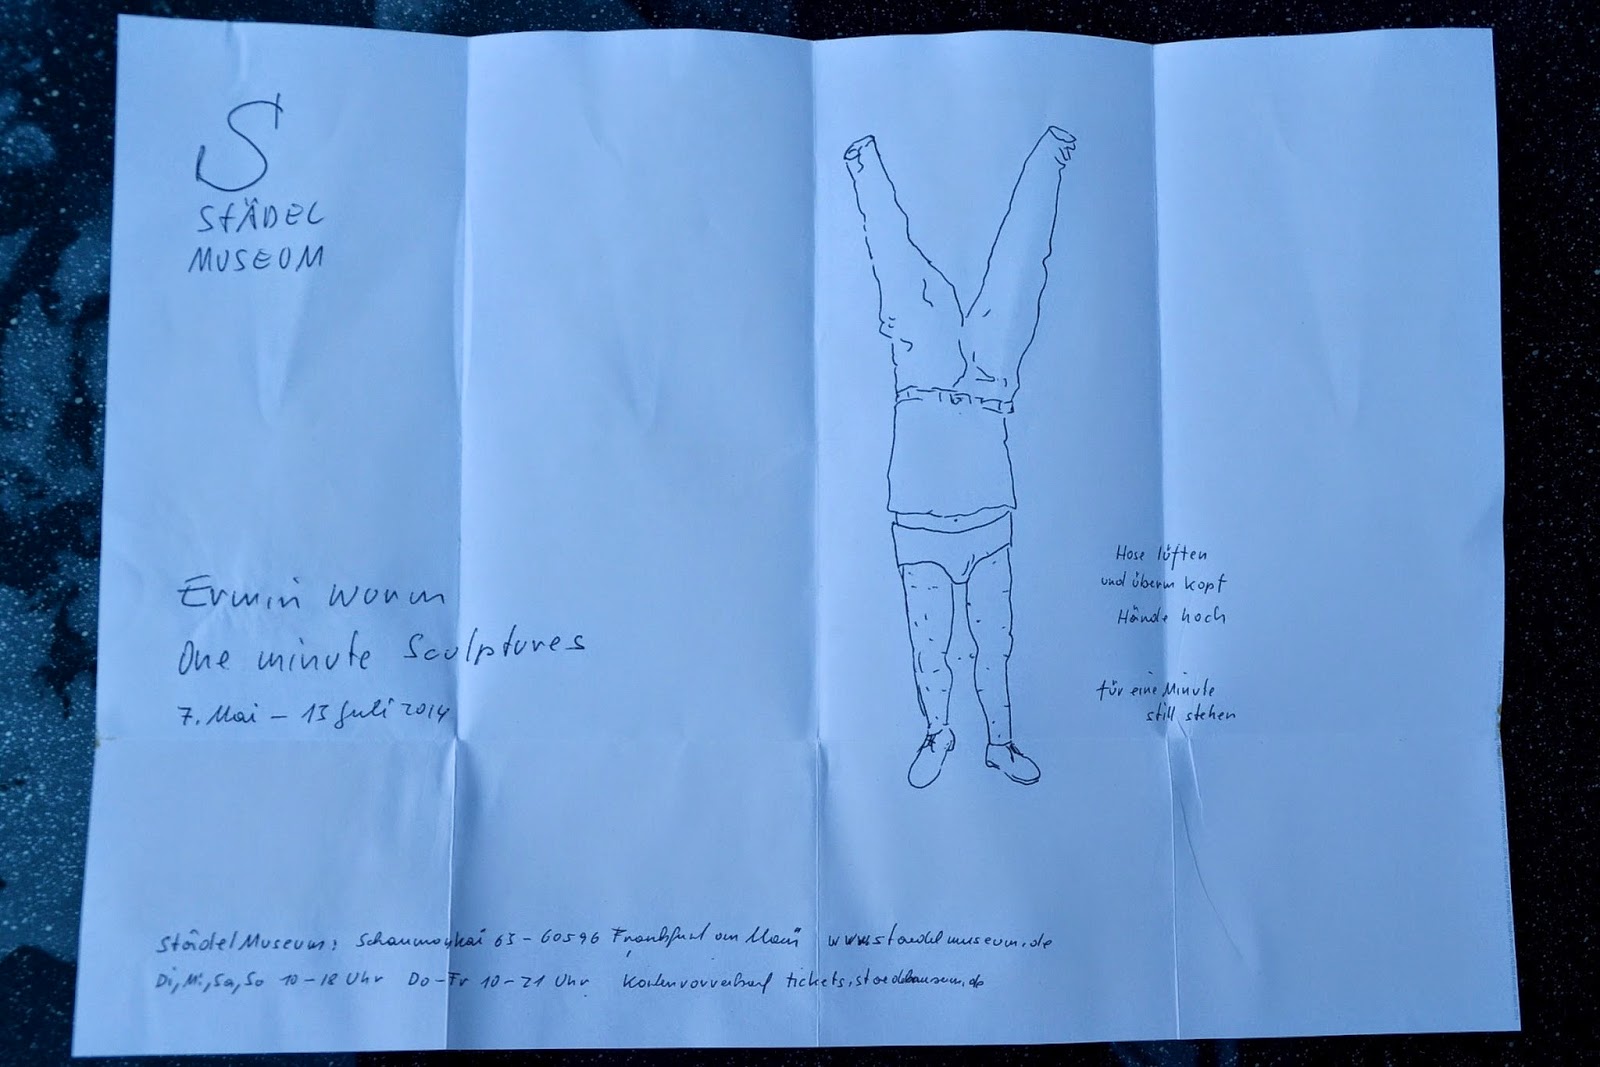 S
STÄDEL
MUSEUM
Erwin Wurm
One minute Sculptures
7. Mai – 13 Juli 2014
Hose lüften
und überm Kopf
Hände hoch
für eine Minute
still stehen
Städel Museum: Schaumainkai 63 – 60596 Frankfurt am Main www.staedelmuseum.de
Di, Mi, Sa, So 10 – 18 Uhr Do – Fr 10 – 21 Uhr Kartenvorverkauf tickets.staedelmuseum.de